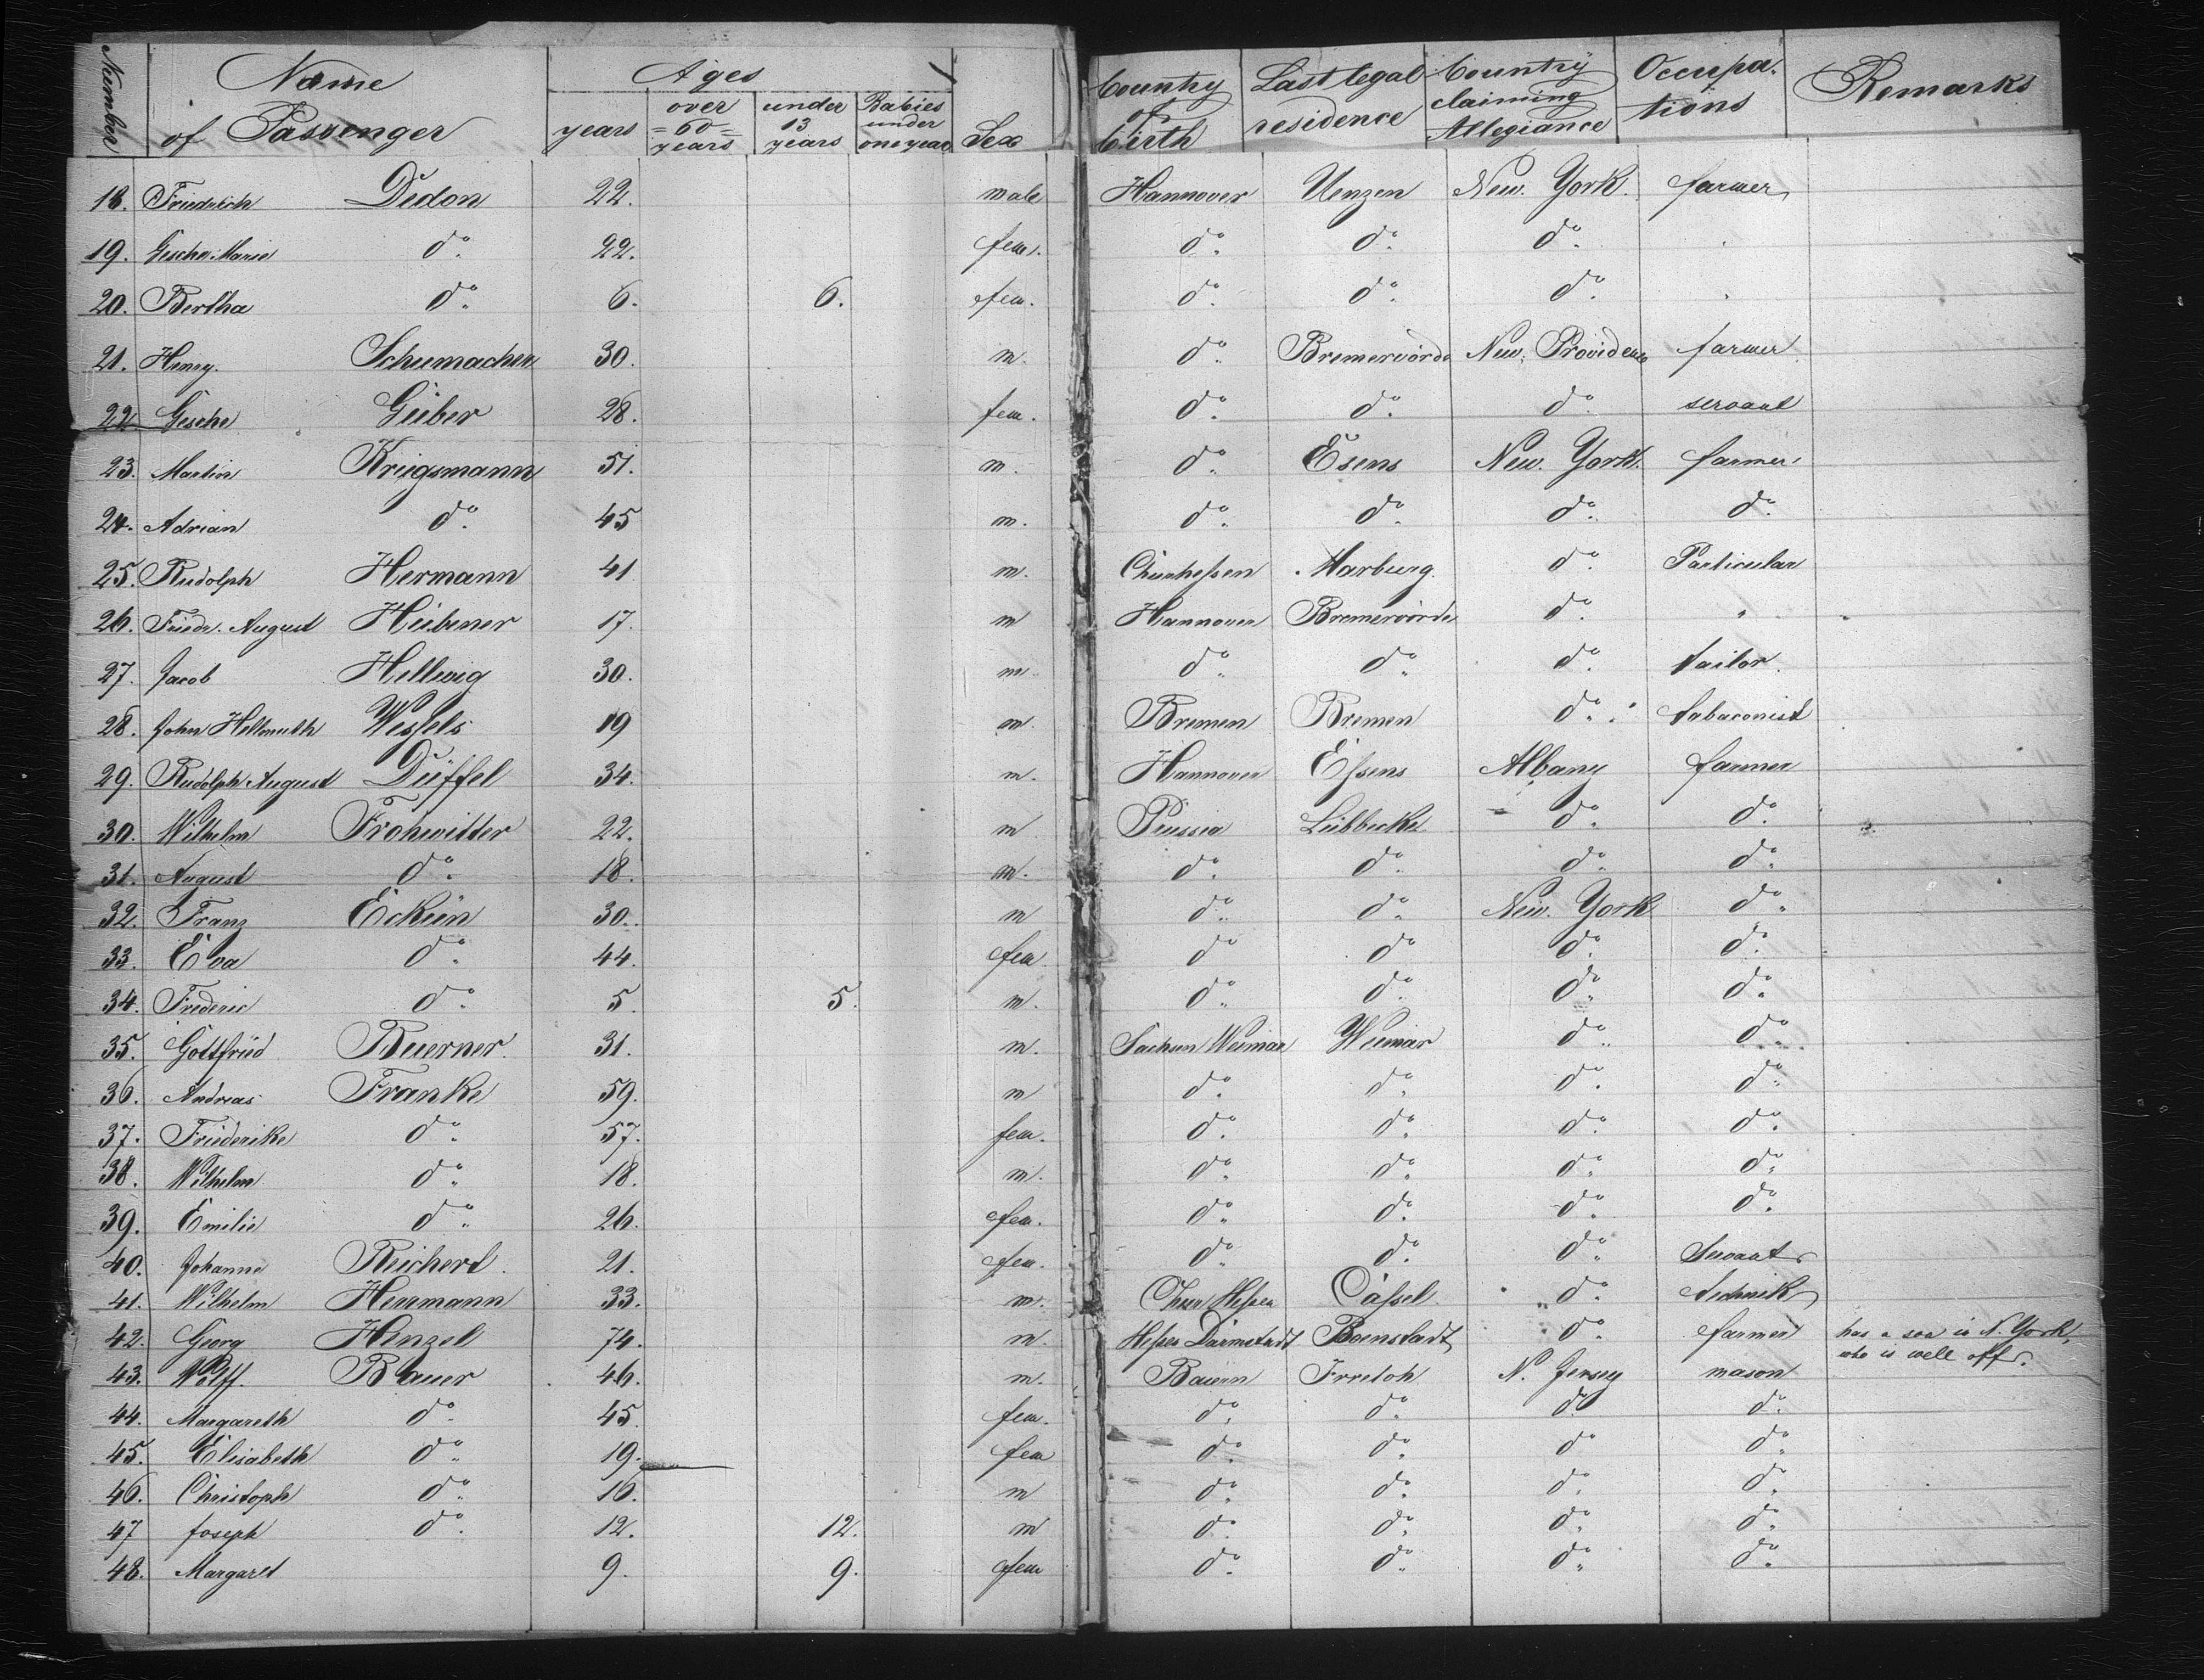 Number Name of Passenger Ages years over =60= years under 13 years Babies under one year Sex Country of birth Last legal residence Country claiming Allegiance Occupations Remarks
18. Friedrich Dedon 22. male Hannover Uenzen New. York. farmer
19. Gesche Marie do. 22. fem. do. do. do.
20. Bertha do. 6. 6. fem. do. do. do.
21. Henry. Schumacher 30. m. do. Bremervörde New. Providence farmer
22. Gesche Güber 28. fem. do. do. do. servant
23. Martin Kriegsmann 51. m. do. Esens New. York. farmer
24. Adrian do. 45 m. do. do. do. do.
25. Rudolph Hermann 41 m. Churhessen Marburg. do. Particular
26. Friedr. August Hübener 17. m Hannover Bremervörde do. "
27. Jacob Hellwig 30. m. do. do. do. tailor.
28. John Hellmuth Wessels 19 m. Bremen Bremen do. tabaconist
29. Rudolph August Düffel 34. m. Hannover Essens Albany farmer
30. Wilhelm Frohwitter 22. m Prussia Lübbecke do. do.
31. August do. 18. m. do. do. do. do.
32. Franz Eckün 30. m do. do. New. York do.
33. Eva do. 44. fem do. do do. do.
34. Frederic do. 5. 5. m. do. do. do. do.
35. Gottfried Buerner. 31. m. Sachsen Weimar Weimar do. do.
36. Andreas Franke 59. m do. do. do. do.
37. Friederike do. 57. fem. do. do. do. do.
38. Wilhelm do. 18. m. do. do. do. do.
39. Emilie do. 26. fem. do. do. do. do.
40. Johanne Reichert. 21. fem. do. do. do. Servant
41. Wilhelm Herrmann 33. m. Chur Hessen Cassel. do. technik
42. Georg Henzel 74. m. Hessen Darmstadt Boenstadt do. farmer has a son in N. York,
who is well off.
43. Wolff. Bauer 46. m. Baiern Irreloh N. Jersey mason
44. Margareth do. 45. fem. do. do. do. do.
45. Elisabeth do. 19. fem do. do. do do.
46. Christoph do. 16. m do. do. do. do.
47 Joseph do. 12. 12. m do. do. do. do.
48. Margaret 9. 9. fem do. do. do. do.